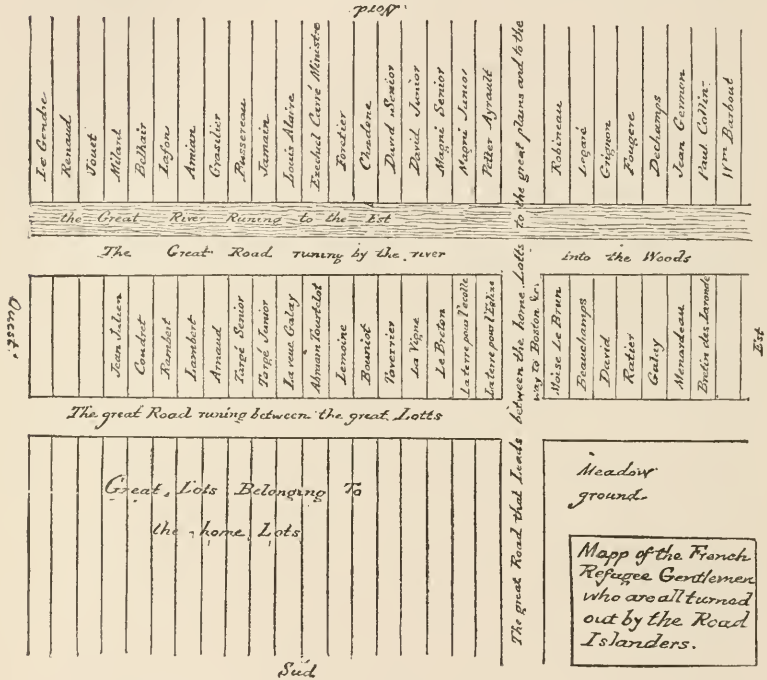 Nord.
Le Gendre
Renaud
Jouet
Milard
Belhair
Lafon
Amian
Grasilier
Bussereau
Jamain
Louis Alaire
Ezechiel Carré Ministre
Foretier
Chadene
David Senior
David Junior
Magni Senior
Magni Junior
Peller Ayrault
Robineau
Legaré
Grignon
Fougere
Dechamps
Jean Germon
Paul Collin
Wm Barbout
the Great River Runing to the Est
The Great Road runing by the river
into the Woods
Ouest.
Jean Julien
Coudret
Rambert
Lambert
Arnaud
Targé Senior
Targé Junior
La veue Galay
Abraam Tourtelot
Lemoine
Bouniot
Taverrier
La Vigne
Le Breton
La terre pour l'écolle
La terre pour l'Eglise
The great Road that Leads between the home Lotts to the great plains and to the
way to Boston &c.
Moise Le Brun
Beauchamps
David
Ratier
Galay
Menardeau
Bretin des Laronde
Est
The great Road runing between the great Lotts
Great Lots Belonging To
the home Lots
Meadow
ground
Mapp of the French
Refugee Gentlemen
who are all turned
out by the Road
Islanders.
Sud